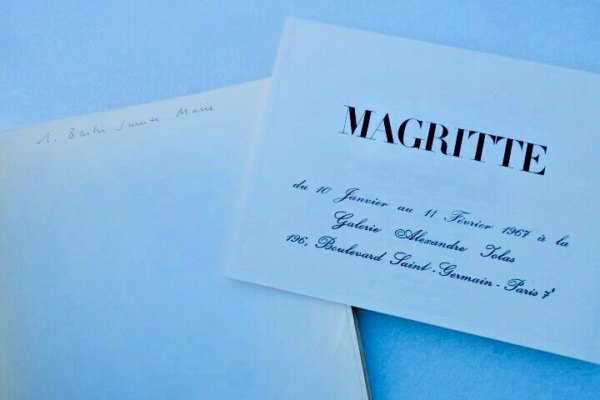 MAGRITTE
du 10 Janvier au 11 Février 1967 à la
Galerie Alexandre Iolas
196, Boulevard Saint-Germain - Paris 7ᵉ